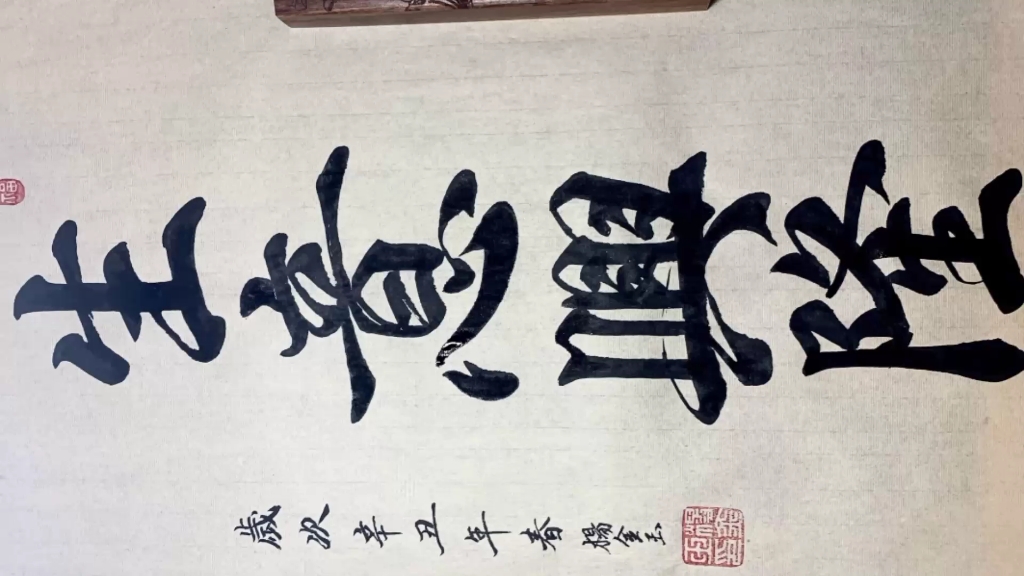 生意興隆
歲次辛丑年春楊金玉